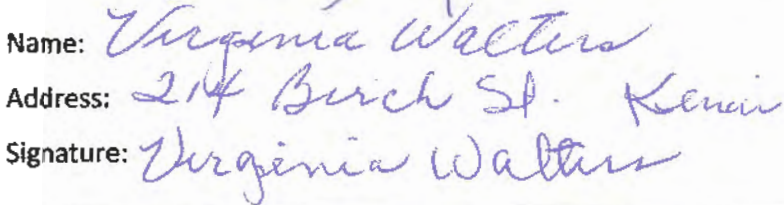 Name: Virginia Walters
Address: 214 Birch St. Kenai
Signature: Virginia Walters